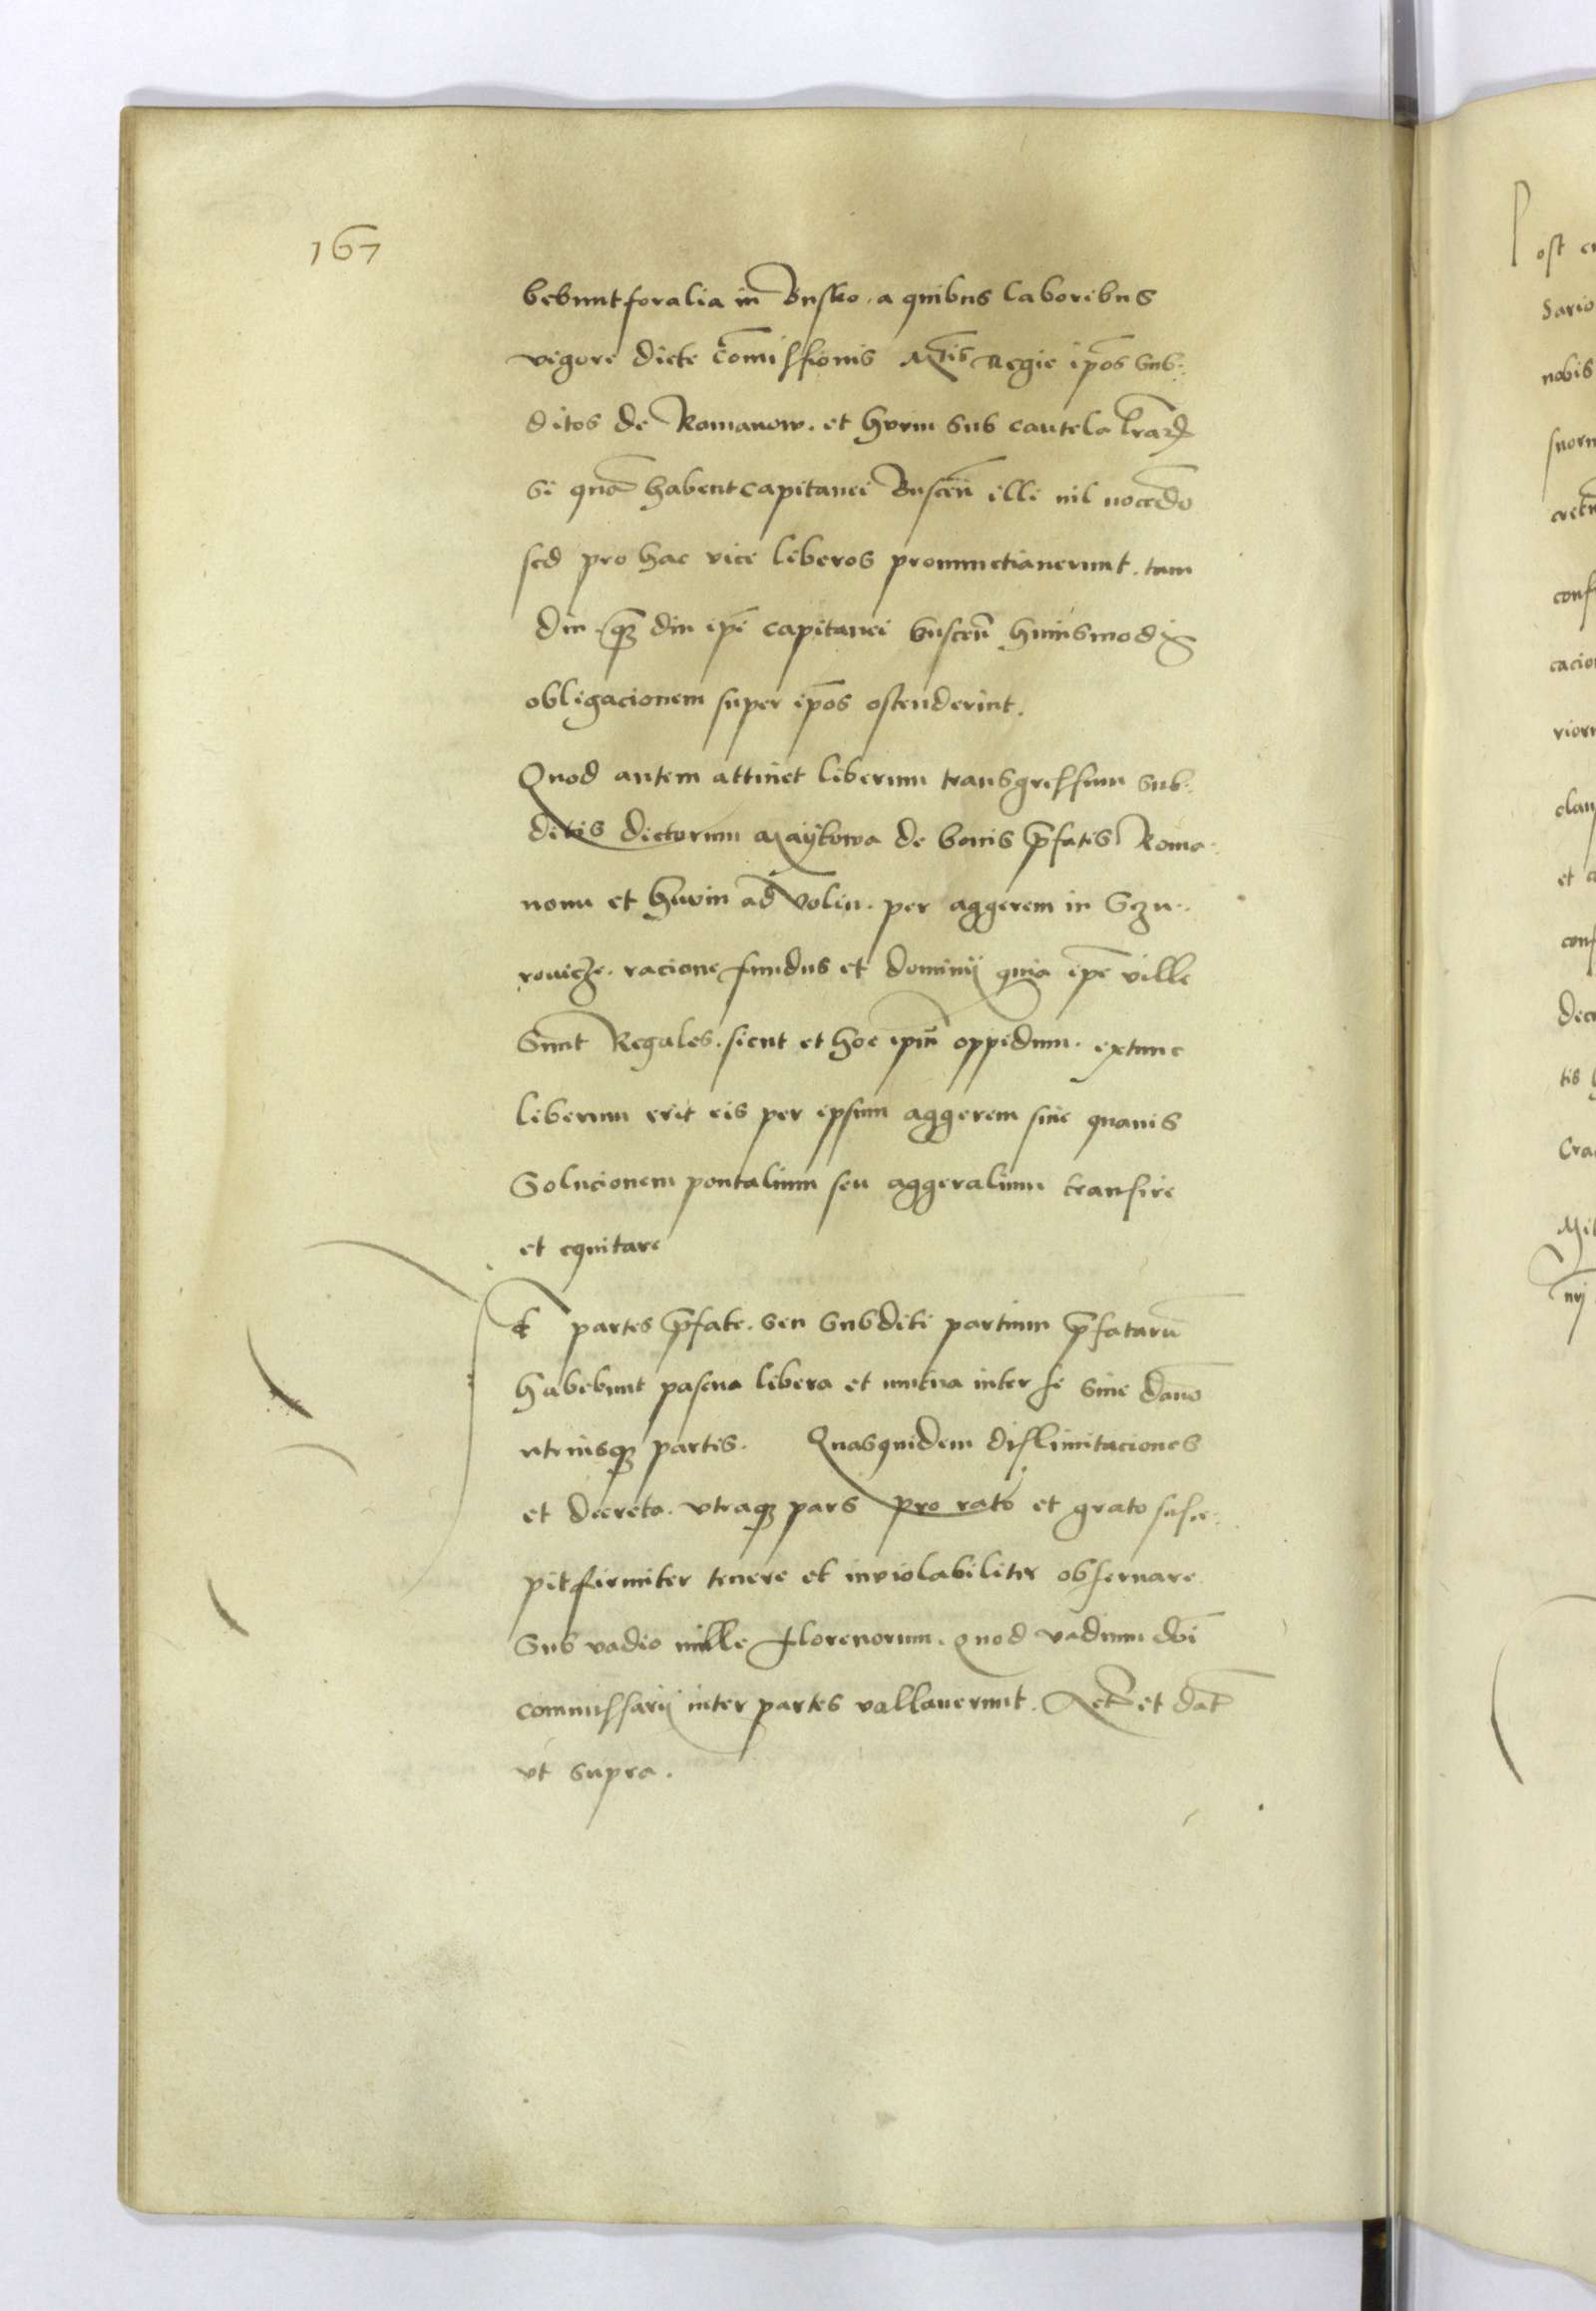 167
bebunt foralia in Busko. a quibus laboribus
vigore dicte com̄issionis Mtis Regie ip̄os sub-
ditos de Romanow. et hvvin sub cautela lr̄aꝝ
si quā habent capitanei Buscēn illi nil nocēdo
sed pro hac vice liberos pronunctiauerunt. tam
diu. qꝫ diu ip̄i capitanei buscēn huiusmodi
obligacionem super ip̄os ostenderint.
Quod autem attinet liberum transgressum sub-
ditis dictorum Maykowa de bonis p̄fatis Roma-
nouu et huvin ad volin. per aggerem in Szu-
rouicze. racione fundus et dominij quia ip̄e ville
Sunt Regales. sicut et hoc ipm̄ oppidum. extunc
liberum erit eis per ipsum aggerem sine quauis
Solucionem pontalium seu aggeralium transire
et equitare
Et partes p̄fate. seu subditi partium p̄fatarū
habebunt pascua libera et mutua inter se sine dan̄o
utriusqꝫ partis. Quasquidem dislimitaciones
et decreta. vtraqꝫ pars pro rato et grato susce-
pit firmiter tenere et inviolabiliter obseruare
Sub vadio mille florenorum. quod vadium dn̄i
commissarij inter partes vallauerunt. Act̄ et dat̄
vt supra.
Post
dario
nobis
cacio
et
tis
Cra